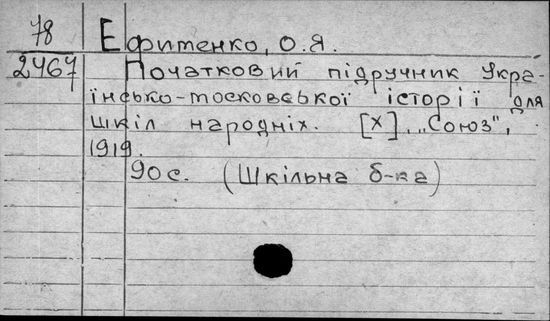 78
2467
Ефименко, О.Я.
Початковий підручник Укра-
їнсько-московської історії для
шкіл народніх. [Х], „Союз",
1919.
90 с. (Шкільна б-ка)